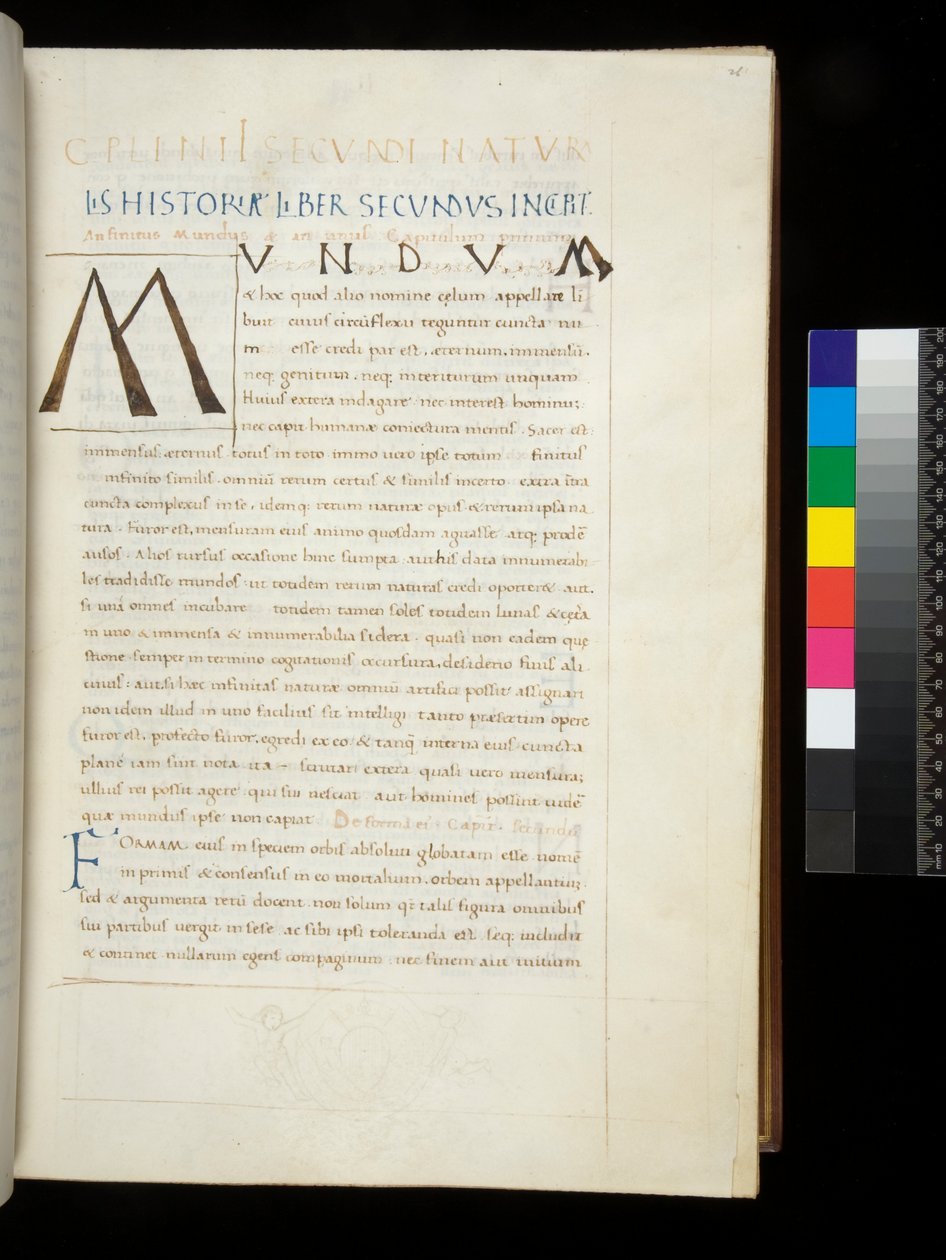 26
C PLINII SECVNDI NATVR
LIS HISTORIÆ LIBER SECVNDVS INCIPIT.
An finitus Mundus & an unus Capitulum primum
MVNDVM
& hoc quod alio nomine cęlum appellare li
buit cuius circūflexu teguntur cuncta nu
m esse credi par est, æternum, immensū.
neq; genitum. neq; interiturum unquam
Huius extera indagare nec interest hominū;
nec capit humanæ coniectura mentis. Sacer est:
immensus: æternus. totus in toto. immo uero ipse totum finitus
infinito similis. omniū rerum certus & similis incerto. extra ītra
cuncta complexus in se, idemq; rerum naturæ opus & rerum ipsa na
tura. Furor est, mensuram eius animo quosdam agitasse atq; prodē
ausos. Alios rursus occasione hinc sumpta aut his data innumerabi
les tradidisse mundos. ut totidem rerum naturas credi oporter&. aut.
si unā omnes incubare totidem tamen soles totidem lunas & cęta
in uno & immensa & innumerabilia sidera. quasi non eadem quę
stione semper in termino cogitationis occursura, desiderio finis ali
cuius: aut, si hæc infinitas naturæ omniū artifici possit assignari
non idem illud in uno facilius sit intelligi tanto præsertim opere
furor est, profecto furor, egredi ex eo & tanq̄ interna eius cuncta
plane iam sint nota ita scrutari extera quasi uero mensurā;
ullius rei possit agere qui sui nesciat aut homines possint uidē
quæ mundus ipse non capiat. De forma ei'. Capit. secundū
FORMAM eius in speciem orbis absoluti globatam esse nomē
in primis & consensus in eo mortalium. orbem appellantiū;
sed & argumenta rerū docent. non solum qr talis figura omnibus
sui partibus uergit in sese ac sibi ipsi toleranda est. seq; includit
& continet nullarum egens compaginum. nec finem aut initium